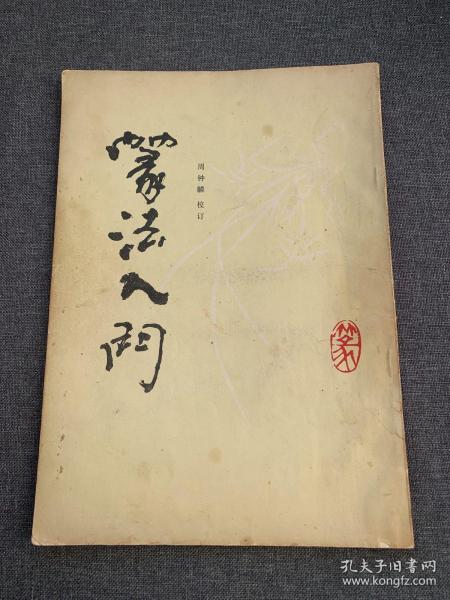 篆法入門
周钟麟 校订
篆
孔夫子旧书网
www.kongfz.com